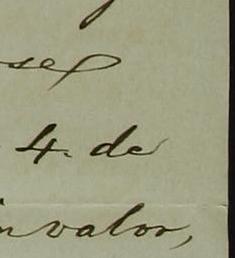 se
4. de
valor,